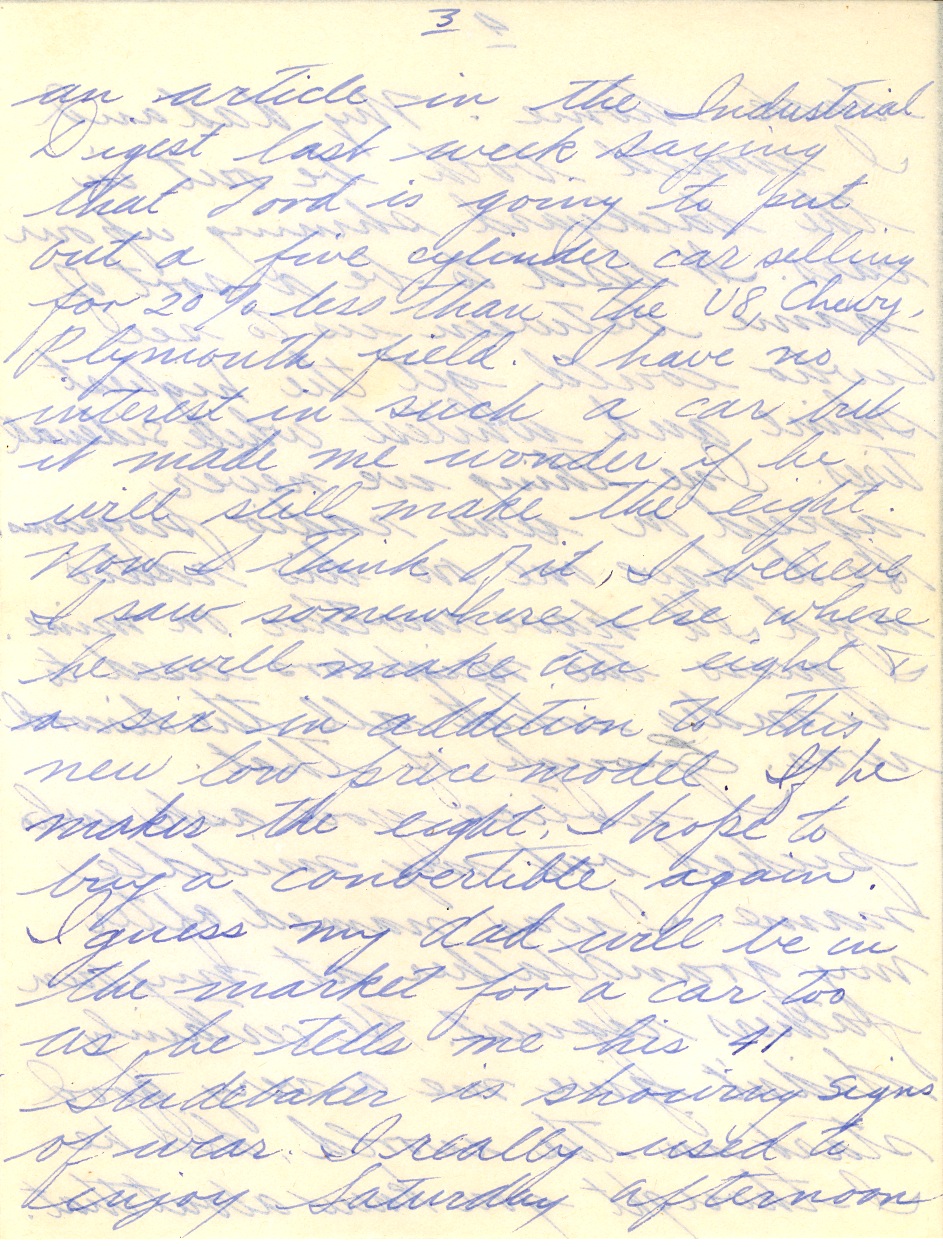 3
an article in the Industrial
Digest last week saying
that Ford is going to put
out a five cylinder car selling
for 20% less than the V8, Chevy,
Plymouth field. I have no
interest in such a car but
it made me wonder if he
will still make the eight.
Now I think of it, I believe
I saw somewhere else where
he will make an eight &
a six in addition to this
new low price model. If he
makes the eight, I hope to
buy a convertible again.
I guess my dad will be in
the market for a car too
as he tells me his 41
Studebaker is showing signs
of wear. I really used to
enjoy Saturday afternoons